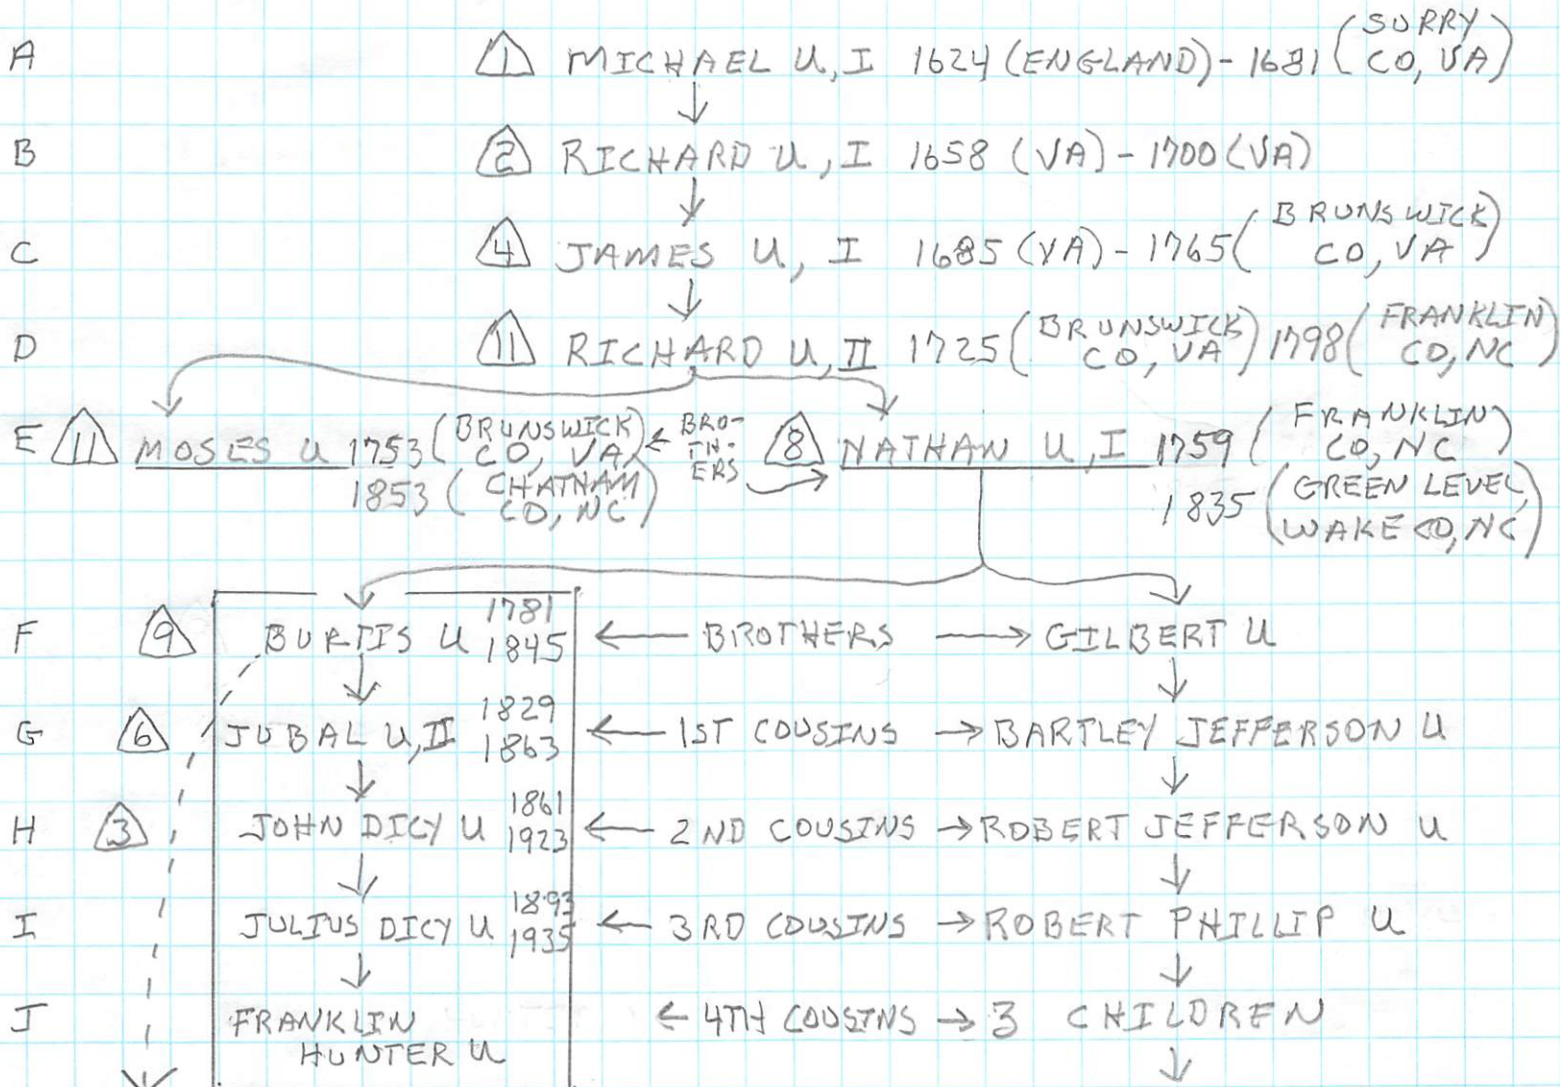 A 1 MICHAEL U, I 1624 (ENGLAND) - 1681 (SURRY CO, VA)
B 2 RICHARD U, I 1658 (VA) - 1700 (VA)
C 4 JAMES U, I 1685 (VA) - 1765 (BRUNSWICK CO, VA)
D 11 RICHARD U, II 1725 (BRUNSWICK CO, VA) 1798 (FRANKLIN CO, NC)
E 11 MOSES U 1753 (BRUNSWICK CO, VA) BRO-TH-ERS 8 NATHAN U, I 1759 (FRANKLIN CO, NC)
1853 (CHATHAM CO, NC) 1835 (GREEN LEVEL, WAKE CO, NC)
F 9 BURTIS U 1781 1845 BROTHERS GILBERT U
G 6 JUBAL U, II 1829 1863 1ST COUSINS BARTLEY JEFFERSON U
H 3 JOHN DICY U 1861 1923 2ND COUSINS ROBERT JEFFERSON U
I JULIUS DICY U 1893 1935 3RD COUSINS ROBERT PHILLIP U
J FRANKLIN HUNTER U 4TH COUSINS 3 CHILDREN